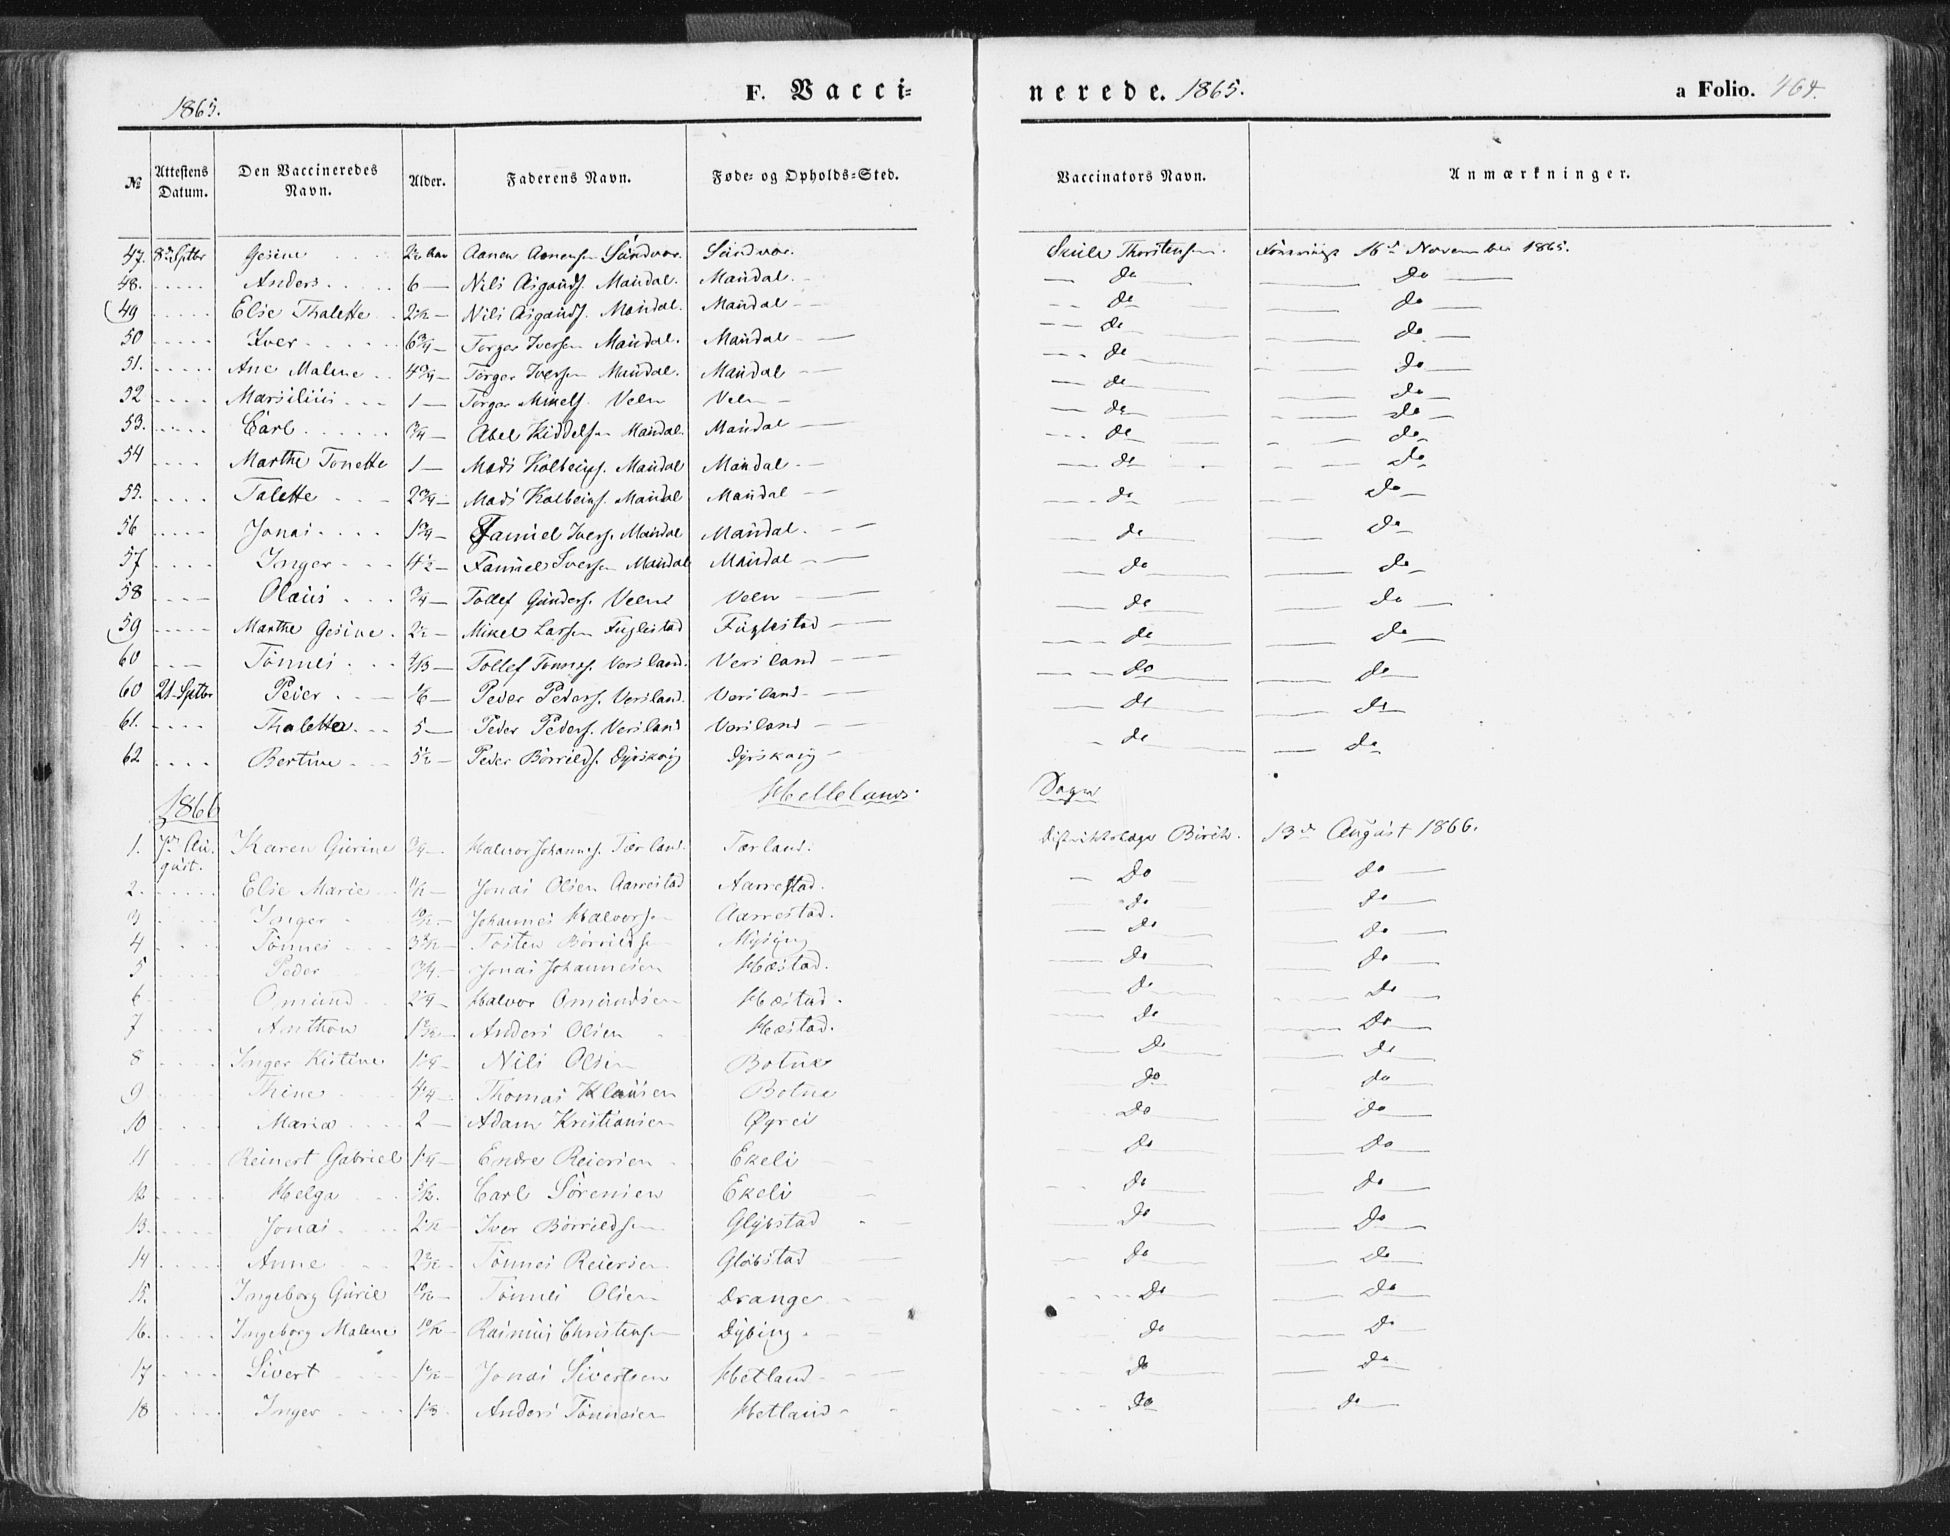 1865. F. Vacci= nerede. 1865. a Folio. 464.
№ Attestens Datum. Den Vaccineredes Navn. Alder. Faderens Navn. Føde= og Opholds=Sted. Vaccinators Navn. Anmærkninger.
47. 8de Septbr Gesine Aanen Aanensen Sundvor. Sundvor. Skule Thorstensen. 16de November 1865.
48. Anders 6 — Nils Mandal. Mandal. do do
49 Elise Thalette 2½ — Nils Mandal. Mandal do do
50 Iver 6¾ — Torger Iversen Mandal. Mandal do do
51. Ane Malene 4¾ — Torger Iversen Mandal. Mandal do do
52 Marselius 1 — Torger Mikels. Veln Veln do do
53. Carl ¾ — Abel Kiddelsen Mandal. Mandal do do
54 Marthe Tonette 1 — Mads Kolbeins. Mandal Mandal do do
55. Talette 2¾ — Mads Kolbeins. Mandal Mandal do do
56 Jonas 1¾ — Samuel Ivers. Mandal Mandal. do do
57 Inger 4½ — Samuel Iversen Mandal Mandal do do
58 Olaus ¾ — Tollef Gunders. Veln Veln do do
59 Marthe Gesine 2½ — Mikel Larsen Fuglestad Fuglestad do do
60 Tønnes Tollef Tønnes. Versland. Versland do do
60 21 Septbr Peder Peder Peders. Versland. Versland do do
61. Thalette 5 — Peder Peders. Versland Versland do do
62 Bertine 5½ — Peder Børrilds. Dyrskog Dyrskog do do
1866 Hellelands Sogn
1. 7de August. Karen Gurine ¾ — Halvor Johannes. Tærland. Tærland. Distriktslæge Birch. 13de August 1866.
2. Elie Marie Jonas Olsen Aarrestad Aarrestad. do do
3 Inger Johannes Halvorsen Aarrestad. do do
4 Tønnes Tosten Børrildsen Mysing do do
5 Peder ¾ — Jonas Johannesen Hæstad. do do
6 Omund 2¼ — Halvor Omundsen Hæstad. do do
7 Anthon Anders Olsen Hæstad. do do
8 Inger Kistine 1¼ — Nils Olsen Botne do do
9 Thine 4¼ — Thomas Klausen Botne do do
10 Maria 2 — Adam Kristiansen Øgrei do do
11 Reinert Gabriel 1¼ — Endre Reiersen Ekeli do do
12 Helga Carl Sørensen Ekeli do do
13. Jonas Iver Børrildsen Gløbstad do do
14 Anne Tønnes Reiersen Gløbstad do do
15. Ingeborg Gurie Tønnes Olsen Drange do do
16. Ingeborg Malene Rasmus Christensen Dybing do do
17 Sivert Jonas Sivertsen Hetland do do
18 Inger Anders Tønnesen Hetland do do